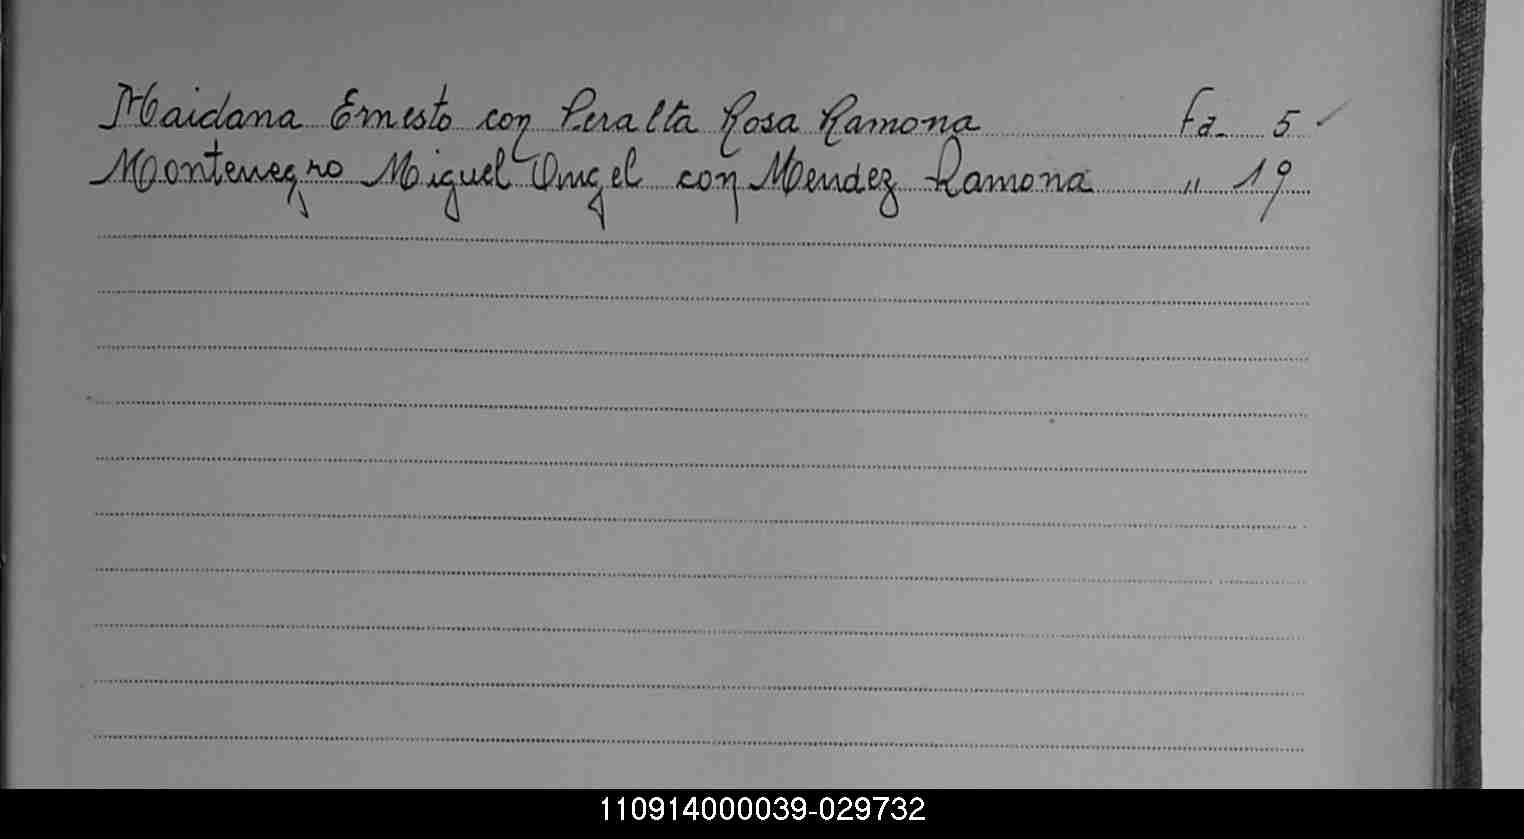 Maidana Ernesto con Peralta Rosa Ramona Fa. 5
Montenegro Miguel Angel con Mendez Ramona " 19
110914000039-029732